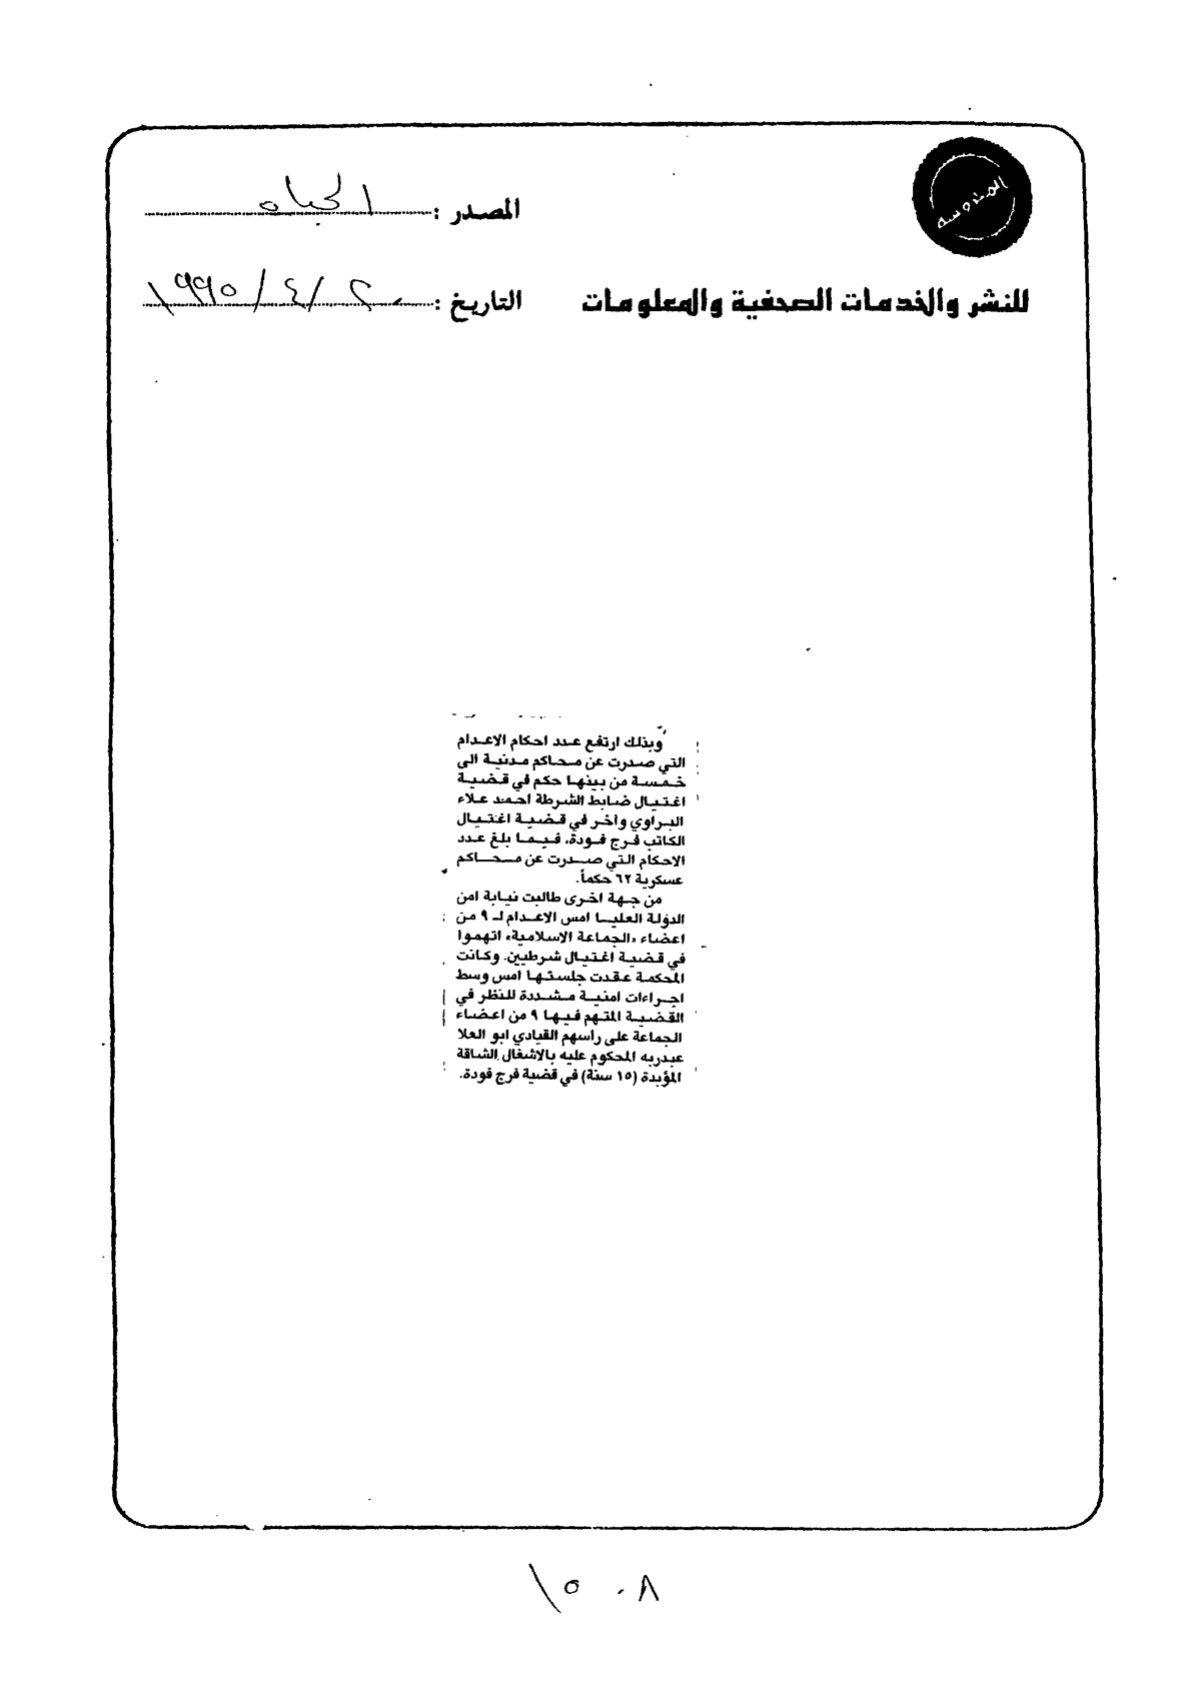 المحروسه
المصدر : الحياه
للنشر والخدمات الصحفية والمعلومات
التاريخ : ٢٠ / ٤ / ١٩٩٥
وبذلك ارتفع عدد احكام الاعدام
التي صدرت عن محاكم مدنية الى
خمسة من بينها حكم في قضية
اغتيال ضابط الشرطة احمد علاء
البراوي وآخر في قضية اغتيال
الكاتب فرج فودة، فيما بلغ عدد
الاحكام التي صدرت عن محاكم
عسكرية ٦٢ حكماً.
من جهة اخرى طالبت نيابة امن
الدولة العليا امس الاعدام لـ ٩ من
اعضاء «الجماعة الاسلامية» اتهموا
في قضية اغتيال شرطيين. وكانت
المحكمة عقدت جلستها امس وسط
اجراءات امنية مشددة للنظر في
القضية المتهم فيها ٩ من اعضاء
الجماعة على راسهم القيادي ابو العلا
عبدربه المحكوم عليه بالاشغال الشاقة
المؤبدة (١٥ سنة) في قضية فرج فودة.
١٥٠٨